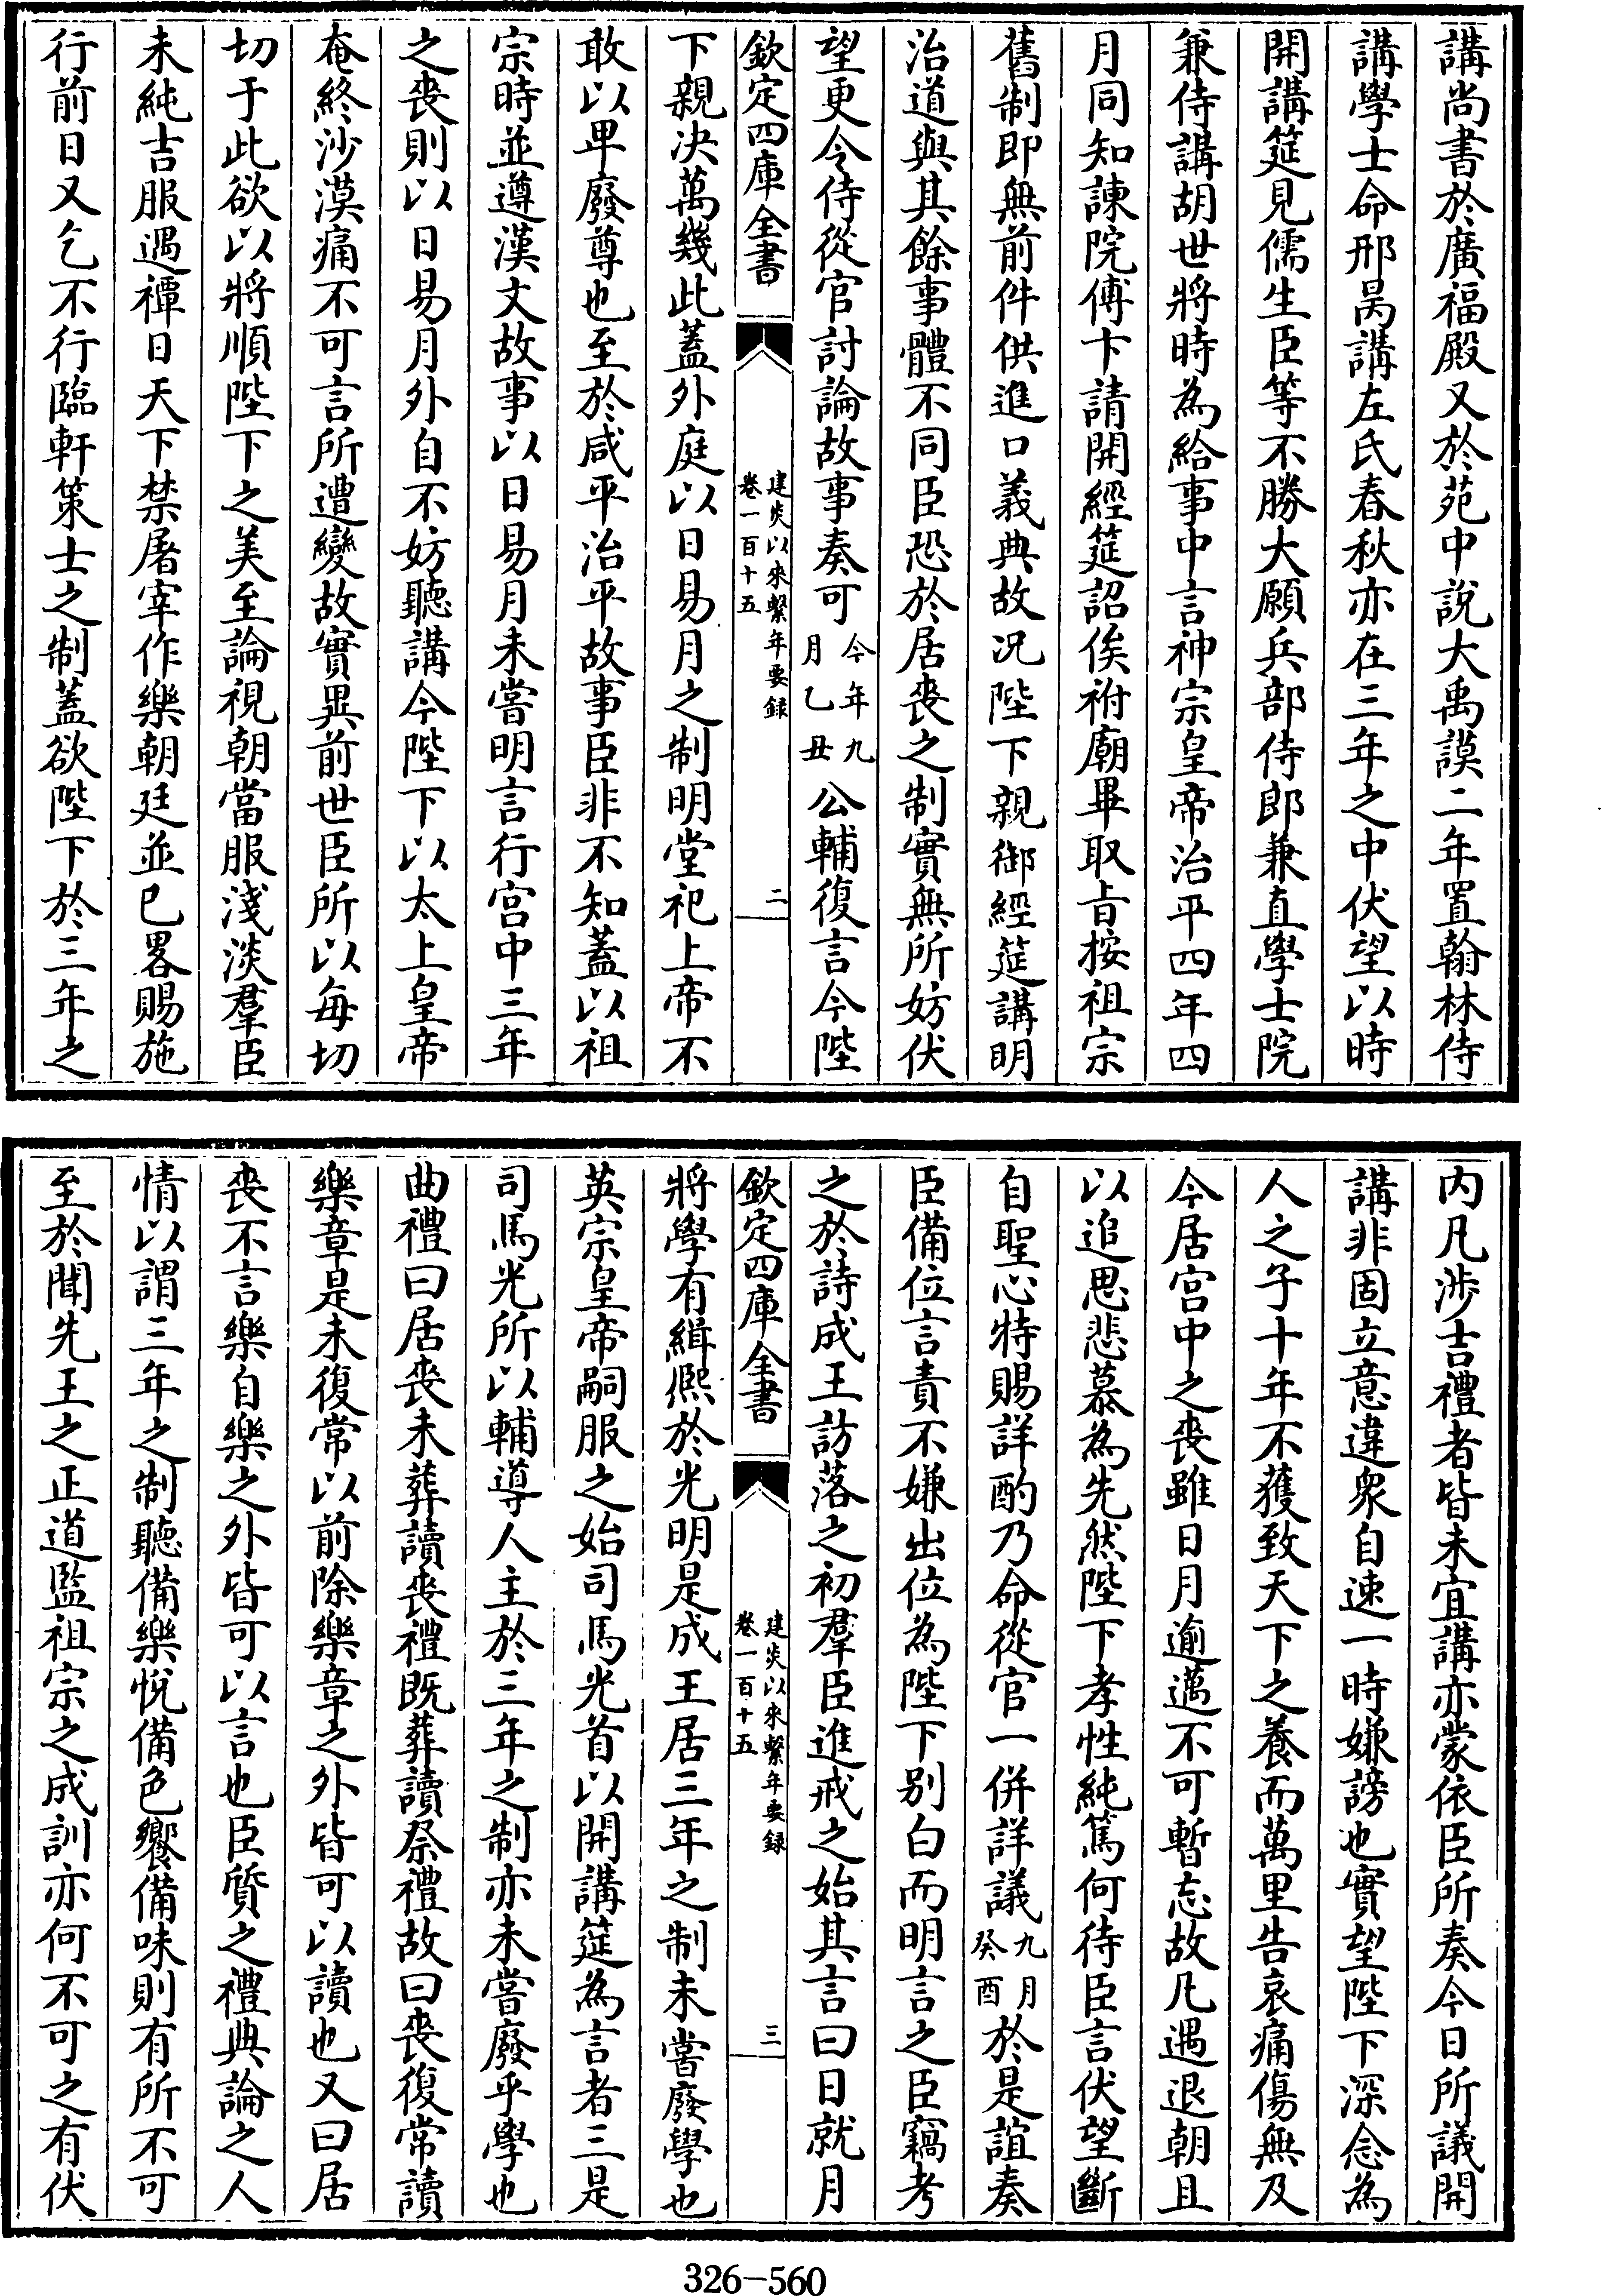 講尚書於廣福殿又於苑中說大禹謨二年置翰林侍
講學士命邢昺講左氏春秋亦在三年之中伏望以時
開講筵見儒生臣等不勝大願兵部侍郎兼直學士院
兼侍講胡世將時為給事中言神宗皇帝治平四年四
月同知諫院傅卞請開經筵詔俟祔廟畢取旨按祖宗
舊制即無前件供進口義典故况陛下親御經筵講明
治道與其餘事體不同臣恐於居喪之制實無所妨伏
望更令侍從官討論故事奏可今年九月乙丑公輔復言今陛
欽定四庫全書
建炎以來繫年要錄
卷一百十五
二
下親決萬幾此蓋外庭以日易月之制明堂祀上帝不
敢以卑廢尊也至於咸平治平故事臣非不知蓋以祖
宗時並遵漢文故事以日易月未嘗明言行宫中三年
之喪則以日易月外自不妨聽講今陛下以太上皇帝
奄終沙漠痛不可言所遭變故實異前世臣所以每切
切于此欲以將順陛下之美至論視朝當服淺淡羣臣
未純吉服遇禫日天下禁屠宰作樂朝廷並已畧賜施
行前日又乞不行臨軒策士之制蓋欲陛下於三年之
内凡涉吉禮者皆未宜講亦蒙依臣所奏今日所議開
講非固立意違衆自速一時嫌謗也實望陛下深念為
人之子十年不獲致天下之養而萬里告哀痛傷無及
今居宫中之喪雖日月逾邁不可暫忘故凡遇退朝且
以追思悲慕為先然陛下孝性純篤何待臣言伏望斷
自聖心特賜詳酌乃命從官一併詳議九月癸酉於是誼奏
臣備位言責不嫌出位為陛下别白而明言之臣竊考
之於詩成王訪落之初羣臣進戒之始其言曰日就月
欽定四庫全書
建炎以來繫年要錄
卷一百十五
三
將學有緝熙於光明是成王居三年之制未嘗廢學也
英宗皇帝嗣服之始司馬光首以開講筵為言者三是
司馬光所以輔導人主於三年之制亦未嘗廢乎學也
曲禮曰居喪未葬讀喪禮既葬讀祭禮故曰喪復常讀
樂章是未復常以前除樂章之外皆可以讀也又曰居
喪不言樂自樂之外皆可以言也臣質之禮典論之人
情以謂三年之制聽備樂悅備色饗備味則有所不可
至於聞先王之正道監祖宗之成訓亦何不可之有伏
326-560